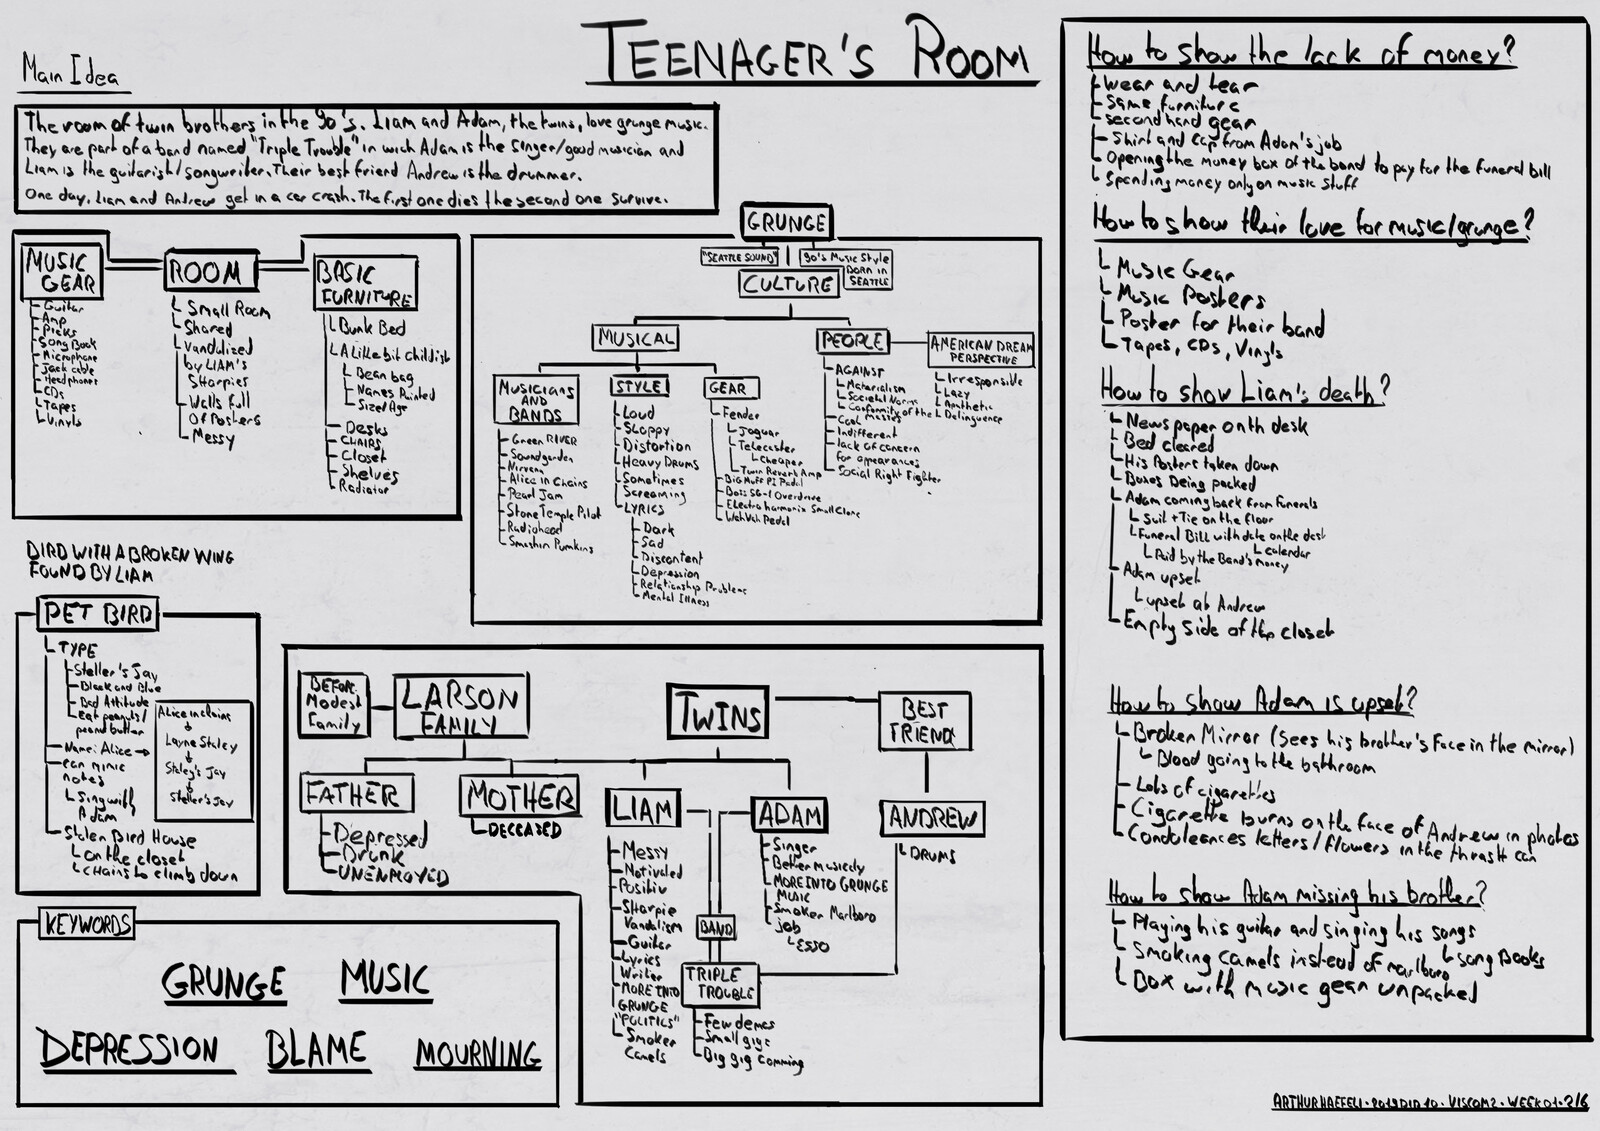 TEENAGER'S ROOM
Main Idea
The room of twin brothers in the 90's. Liam and Adam, the twins, love grunge music.
They are part of a band named "Triple Trouble" in wich Adam is the singer/good musician and
Liam is the guitarist/songwriter. Their best friend Andrew is the drummer.
One day, Liam and Andrew get in a car crash. The first one dies the second one survive.
MUSIC
GEAR
Guitar
Amp
Picks
Song Book
Microphone
Jack cable
Headphones
CDs
Tapes
Vinyls
ROOM
Small Room
Shared
Vandalized
by LIAM's
Sharpies
Walls full
Of Posters
Messy
BASIC
FURNITURE
Bunk Bed
A little bit Childish
Bean bag
Names Painted
Sized Age
Desks
CHAIRS
Closet
Shelves
Radiator
GRUNGE
"SEATTLE SOUND"
90's Music Style
BORN IN
SEATTLE
CULTURE
MUSICAL
PEOPLE
AMERICAN DREAM
PERSPECTIVE
Irresponsible
Lazy
Apathetic
Delinquence
MUSICIANS
AND
BANDS
Green RIVER
Soundgarden
Nirvana
Alice in Chains
Pearl Jam
Stone Temple Pilot
Radiohead
Smashin Pumkins
STYLE
Loud
Sloppy
Distortion
HEAVY DRUMS
Sometimes
Screaming
LYRICS
Dark
Sad
Discontent
Depression
Relationship Problems
Mental Illness
GEAR
Fender
Jaguar
Telecaster
Cheaper
Twin Reverb Amp
Big Muff PI Pedal
Boss SG-1 Overdrive
Electro harmonix Small Clone
WahWah Pedal
AGAINST
Materialism
Societal Norms
Conformity of the
masses
Cool
Indifferent
lack of concern
for appearances
Social Right Fighter
BIRD WITH A BROKEN WING
FOUND BY LIAM
PET BIRD
TYPE
Steller's Jay
Black and Blue
Bad Attitude
Eat peanuts/
peanut butter
Name: Alice →
can mimic
notes
Sing with
Adam
Stolen Bird House
On the closet
chains to climb down
Alice in chains
↓
Layne Staley
↓
Staley's Jay
↓
Steller's Jay
BEFORE
Modest
Family
LARSON
FAMILY
TWINS
BEST
FRIEND
FATHER
Depressed
Drunk
UNEMPLOYED
MOTHER
DECEASED
LIAM
Messy
Motivated
Positiv
Sharpie
Vandalism
Guitar
Lyrics
Writer
MORE INTO
GRUNGE
"POLITICS"
Smoker
Camels
ADAM
Singer
Better musicaly
MORE INTO GRUNGE
MUSIC
Smoker Marlboro
job
ESSO
ANDREW
DRUMS
BAND
TRIPLE
TROUBLE
Few demos
Small gigs
Big gig comming
KEYWORDS
GRUNGE MUSIC
DEPRESSION BLAME MOURNING
How to show the lack of money?
Wear and tear
Same furniture
second hand gear
Shirt and cap from Adam's job
Opening the money box of the band to pay for the funeral bill
Spending money only on music stuff
How to show their love for music/grunge?
Music Gear
Music Posters
Poster for their band
Tapes, CDs, Vinyls
How to show Liam's death?
News paper on th desk
Bed cleared
His Posters taken down
Boxes Being packed
Adam coming back from Funerals
Suit + Tie on the floor
Funeral Bill with date on the desk
calendar
Paid by the Band's money
Adam upset
upset at Andrew
Empty side of the closet
How to show Adam is upset?
Broken Mirror (Sees his brother's Face in the mirror)
Blood going to the bathroom
Lots of cigarettes
Cigarette burns on the face of Andrew in photos
Condoleances letters/flowers in the thrash can
How to show Adam missing his brother?
Playing his guitar and singing his songs
Song Books
Smoking camels instead of marlboro
Box with music gear unpacked
ARTHUR HAEFELI · 2019 DID 10 · VISCOM2 · WEEK01 · 2/6